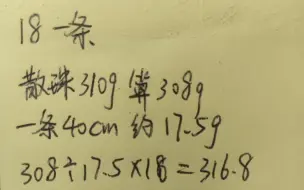 18一条
散珠310g 算308g
一条40cm 约17.5g
308÷17.5×18=316.8